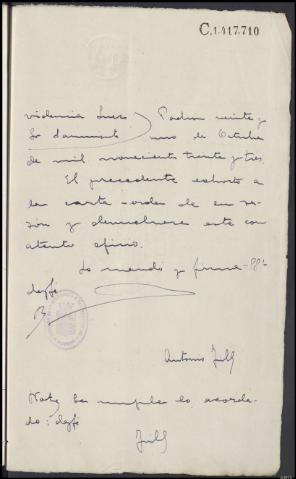 C.1.417.710
videncia Juez Padron veinte y
uno de Octubre
de mil novecientos treinta y tres.
El precedente exhorto a
la carta-orden de su ra-
zón y devuélvase con
atento oficio.
Lo mandó y firma
doy fe
Antonio Jull
Nota Se cumple lo acorda-
do: doyfe
Jull